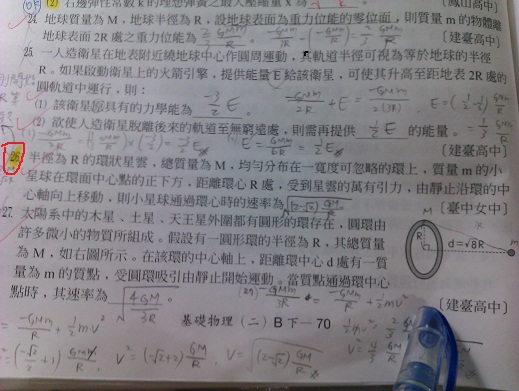 (2) 右邊彈性常數k的理想彈簧之最大壓縮量x為 [鳳山高中]
24. 地球質量為M，地球半徑為R，設地球表面為重力位能的零位面，則質量m的物體離
地球表面2R處之重力位能為 [建臺高中]
25. 一人造衛星在地表附近繞地球中心作圓周運動，其軌道半徑可視為等於地球的半徑
R。如果啟動衛星上的火箭引擎，提供能量E給該衛星，可使其升高至距地表2R處的
圓軌道中運行，則：
(1) 該衛星原具有的力學能為 -3/2 E。 -GMm/2R + E = E=(1/2-1/6)GMm/R
(2) 欲使人造衛星脫離後來的軌道至無窮遠處，則需再提供 1/2 E 的能量。 = 1/3 GMm/R
[建臺高中]
26. 半徑為R的環狀星雲，總質量為M，均勻分布在一寬度可忽略的環上，質量m的小
星球在環面中心點的正下方，距離環心R處，受到星雲的萬有引力，由靜止沿環的中
心軸向上移動，則小星球通過環心時的速率為 √(2-√2)GM/R [臺中女中]
27. 太陽系中的木星、土星、天王星外圍都有圓形的環存在，圓環由
許多微小的物質所組成。假設有一圓形環的半徑為R，其總質量
為M，如右圖所示。在該環的中心軸上，距離環中心d處有一質
量為m的質點，受圓環吸引由靜止開始運動。當質點通過環中心
點時，其速率為 √4GM/3R 。 [建臺高中]
M
R
d=√8R
m
(27) -GMm/3R = -GMm/R + 1/2 mv²
基礎物理（二）B下—70
= -GMm/R + 1/2 mv²
v² = 4/3 GM/R
= (-√2/2+1) GMm/R v² = (-√2+2) GM/R V = √(2-√2) GM/R